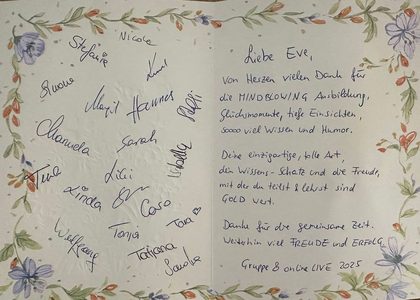 Nicole
Stefanie
Simone
Margit
Hannes
Manuela
Sarah
Lili
Isabella
Linda
Caro
Wolfgang
Tanja
Tara
Tatjana
Sandra
Liebe Eve,
von Herzen vielen Dank für
die MINDBLOWING Ausbildung,
Glücksmomente, tiefe Einsichten,
soooo viel Wissen und Humor.
Deine einzigartige, tolle Art,
den Wissens-Schatz und die Freude,
mit der du teilst & lehrst sind
GOLD wert.
Danke für die gemeinsame Zeit.
Weiterhin viel FREUDE und ERFOLG
Gruppe 8 online LIVE 2025